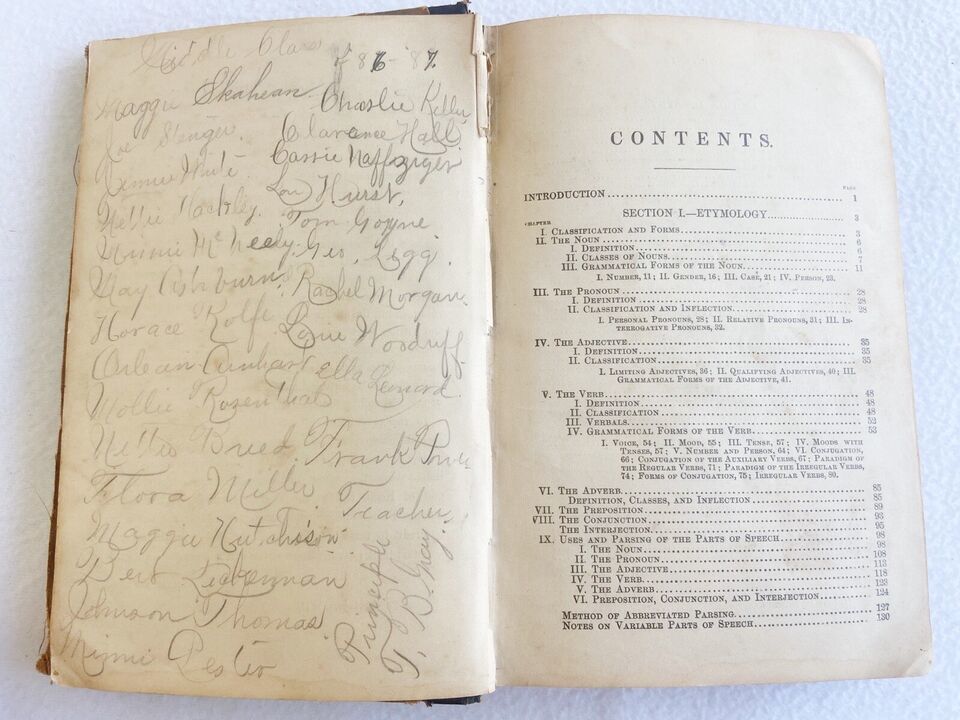 Middle Class of 86-87.
Maggie Skahean. Charlie Keller
Joe Stenger. Clarence Hall
Minnie White Cassie Naffziger
Nettie Hackley. Lou Hurst,
Tom Goyne.
Minnie McNeely. Geo. Legg.
May Ashburn. Rachel Morgan.
Horace Rolfe Lorie Woodruff.
Orlean Ella Leonard.
Mollie Rosenthal
Nettie Breed. Frank
Flora Miller Teacher
Maggie Hutchison
Dickman
Johnson Thomas
Minnie Lester
T. B. Gray.
CONTENTS.
PAGE
INTRODUCTION 1
SECTION I.—ETYMOLOGY 3
CHAPTER
I. CLASSIFICATION AND FORMS 3
II. THE NOUN 6
I. DEFINITION 6
II. CLASSES OF NOUNS 7
III. GRAMMATICAL FORMS OF THE NOUN 11
I. NUMBER, 11; II. GENDER, 16; III. CASE, 21; IV. PERSON, 23.
III. THE PRONOUN 28
I. DEFINITION 28
II. CLASSIFICATION AND INFLECTION 28
I. PERSONAL PRONOUNS, 28; II. RELATIVE PRONOUNS, 31; III. IN-
TERROGATIVE PRONOUNS, 32.
IV. THE ADJECTIVE 35
I. DEFINITION 35
II. CLASSIFICATION 35
I. LIMITING ADJECTIVES, 36; II. QUALIFYING ADJECTIVES, 40; III.
GRAMMATICAL FORMS OF THE ADJECTIVE, 41.
V. THE VERB 48
I. DEFINITION 48
II. CLASSIFICATION 48
III. VERBALS 52
IV. GRAMMATICAL FORMS OF THE VERB 53
I. VOICE, 54; II. MOOD, 55; III. TENSE, 57; IV. MOODS WITH
TENSES, 57; V. NUMBER AND PERSON, 64; VI. CONJUGATION,
66; CONJUGATION OF THE AUXILIARY VERBS, 67; PARADIGM OF
THE REGULAR VERBS, 71; PARADIGM OF THE IRREGULAR VERBS,
74; FORMS OF CONJUGATION, 75; IRREGULAR VERBS, 80.
VI. THE ADVERB 85
DEFINITION, CLASSES, AND INFLECTION 85
VII. THE PREPOSITION 89
VIII. THE CONJUNCTION 93
THE INTERJECTION 95
IX. USES AND PARSING OF THE PARTS OF SPEECH 98
I. THE NOUN 98
II. THE PRONOUN 108
III. THE ADJECTIVE 113
IV. THE VERB 118
V. THE ADVERB 123
VI. PREPOSITION, CONJUNCTION, AND INTERJECTION 124
METHOD OF ABBREVIATED PARSING 127
NOTES ON VARIABLE PARTS OF SPEECH 130